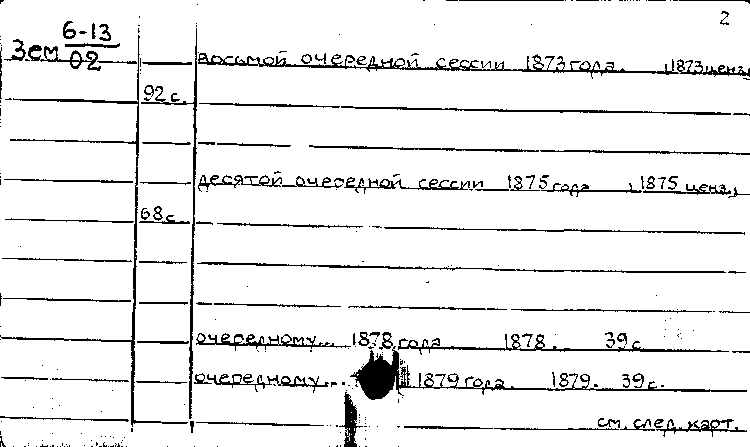 2
Зем 6-13
02
восьмой очередной сессии 1873 года. , 1873 ценз,
92 с.
десятой очередной сессии 1875 года , 1875 ценз.,
68 с.
очередному... 1878 года. 1878. 39 с
очередному... 1879 года. 1879. 39 с.
см. след. карт.